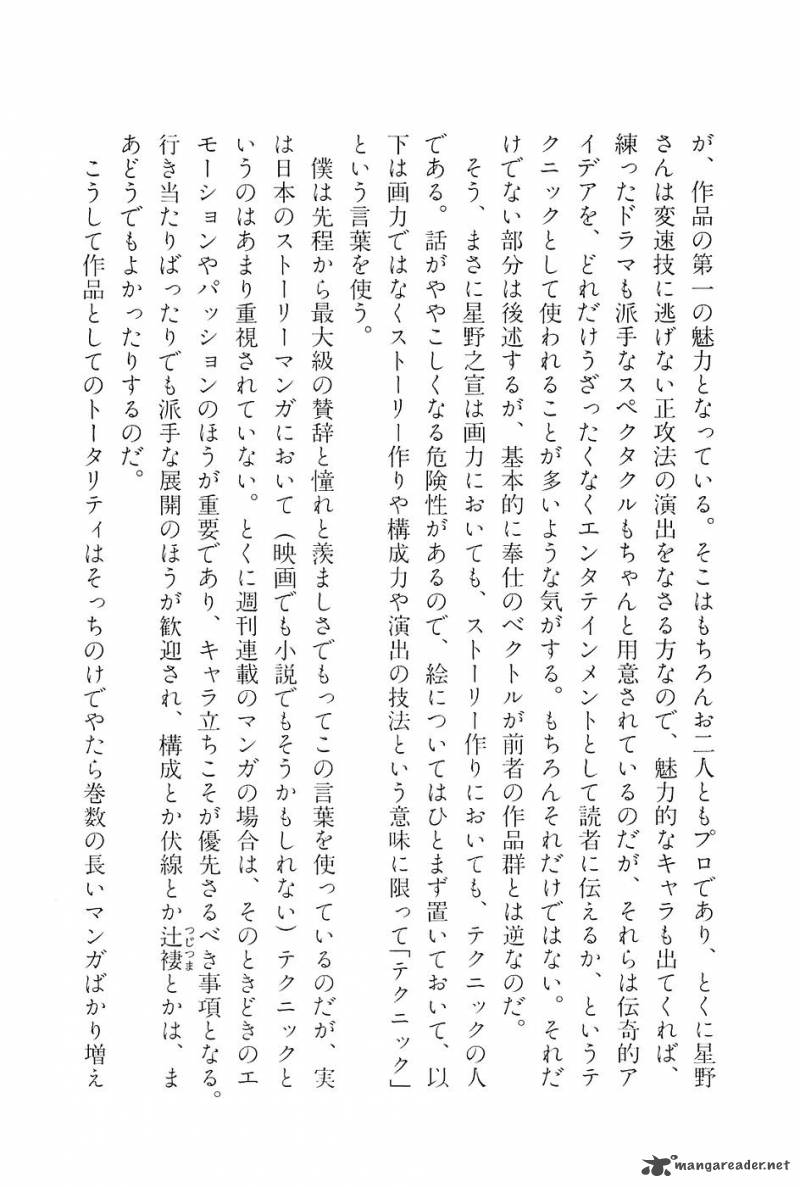 が、作品の第一の魅力となっている。そこはもちろんお二人ともプロであり、とくに星野
さんは変速技に逃げない正攻法の演出をなさる方なので、魅力的なキャラも出てくれば、
練ったドラマも派手なスペクタクルもちゃんと用意されているのだが、それらは伝奇的ア
イデアを、どれだけうざったくなくエンタテインメントとして読者に伝えるか、というテ
クニックとして使われることが多いような気がする。もちろんそれだけではない。それだ
けでない部分は後述するが、基本的に奉仕のベクトルが前者の作品群とは逆なのだ。
そう、まさに星野之宣は画力においても、ストーリー作りにおいても、テクニックの人
である。話がややこしくなる危険性があるので、絵についてはひとまず置いておいて、以
下は画力ではなくストーリー作りや構成力や演出の技法という意味に限って「テクニック」
という言葉を使う。
僕は先程から最大級の賛辞と憧れと羨ましさでもってこの言葉を使っているのだが、実
は日本のストーリーマンガにおいて（映画でも小説でもそうかもしれない）テクニックと
いうのはあまり重視されていない。とくに週刊連載のマンガの場合は、そのときどきのエ
モーションやパッションのほうが重要であり、キャラ立ちこそが優先さるべき事項となる。
行き当たりばったりでも派手な展開のほうが歓迎され、構成とか伏線とか辻褄とかは、ま
つじつま
あどうでもよかったりするのだ。
こうして作品としてのトータリティはそっちのけでやたら巻数の長いマンガばかり増え
mangareader.net